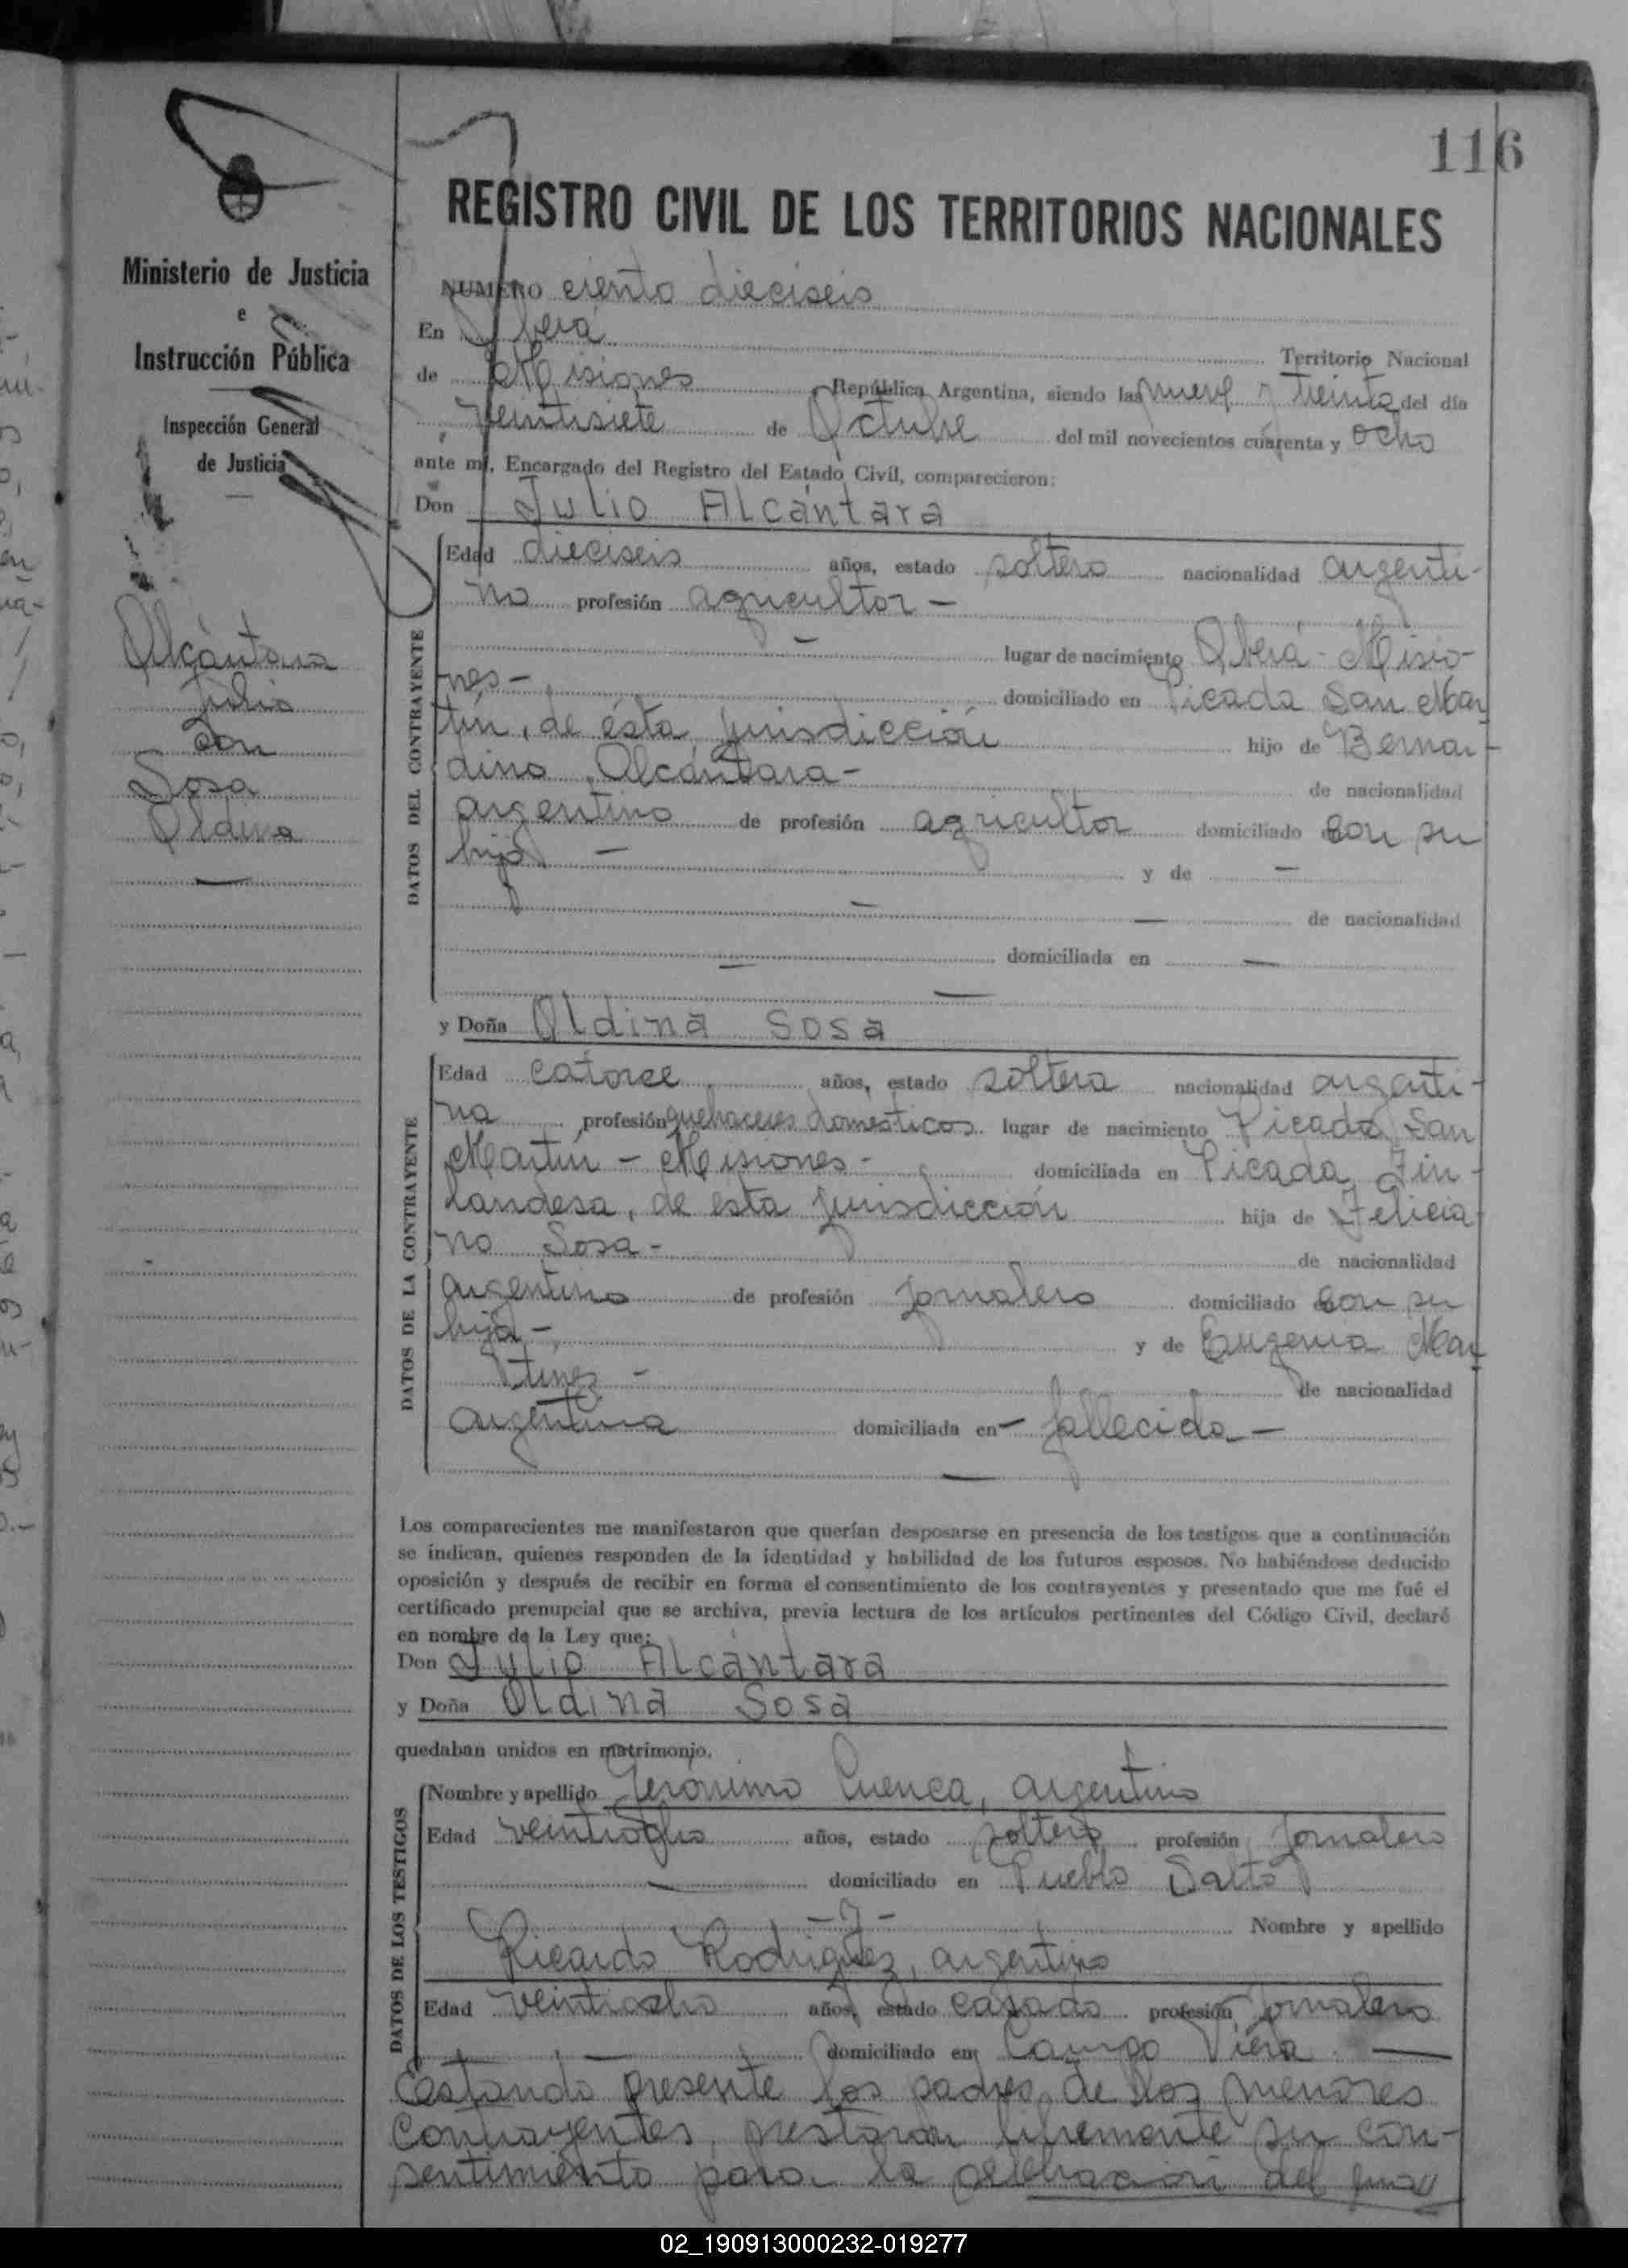 116
REGISTRO CIVIL DE LOS TERRITORIOS NACIONALES
Ministerio de Justicia
e
Instrucción Pública
Inspección General
de Justicia
Alcántara
Julio
con
Sosa
Oldina
NUMERO ciento dieciseis
En Oberá Territorio Nacional
de Misiones República Argentina, siendo las nueve y treinta del día
veintisiete de Octubre del mil novecientos cuarenta y ocho
ante mí, Encargado del Registro del Estado Civil, comparecieron:
Don Julio Alcántara
DATOS DEL CONTRAYENTE
Edad dieciseis años, estado soltero nacionalidad argenti-
no profesión agricultor -
- lugar de nacimiento Oberá - Misio-
nes - domiciliado en Picada San Mar
tín, de ésta jurisdicción hijo de Bernar-
dino Alcántara - de nacionalidad
argentino de profesión agricultor domiciliado con su
hijo - y de -
- - de nacionalidad
- domiciliada en -
-
y Doña Oldina Sosa
DATOS DE LA CONTRAYENTE
Edad catorce años, estado soltera nacionalidad argenti-
na profesión quehaceres domésticos lugar de nacimiento Picada San
Martín - Misiones - domiciliada en Picada Fin-
landesa, de esta jurisdicción hija de Felicia
no Sosa - de nacionalidad
argentino de profesión jornalero domiciliado con su
hija - y de Eugenia Mar
tinez - de nacionalidad
argentina domiciliada en - fallecida -
-
Los comparecientes me manifestaron que querían desposarse en presencia de los testigos que a continuación
se indican, quienes responden de la identidad y habilidad de los futuros esposos. No habiéndose deducido
oposición y después de recibir en forma el consentimiento de los contrayentes y presentado que me fué el
certificado prenupcial que se archiva, previa lectura de los artículos pertinentes del Código Civil, declaré
en nombre de la Ley que:
Don Julio Alcántara
y Doña Oldina Sosa
quedaban unidos en matrimonio.
DATOS DE LOS TESTIGOS
Nombre y apellido Jerónimo Cuenca, argentino
Edad veintiocho años, estado soltero profesión jornalero
- domiciliado en Pueblo Salto
- y - Nombre y apellido
Ricardo Rodriguez, argentino
Edad veintiocho años, estado casado profesión jornalero
- domiciliado en Campo Viera -
Estando presente los padres de los menores
contrayentes, prestaron libremente su con-
sentimiento para la celebracion del
02_190913000232-019277